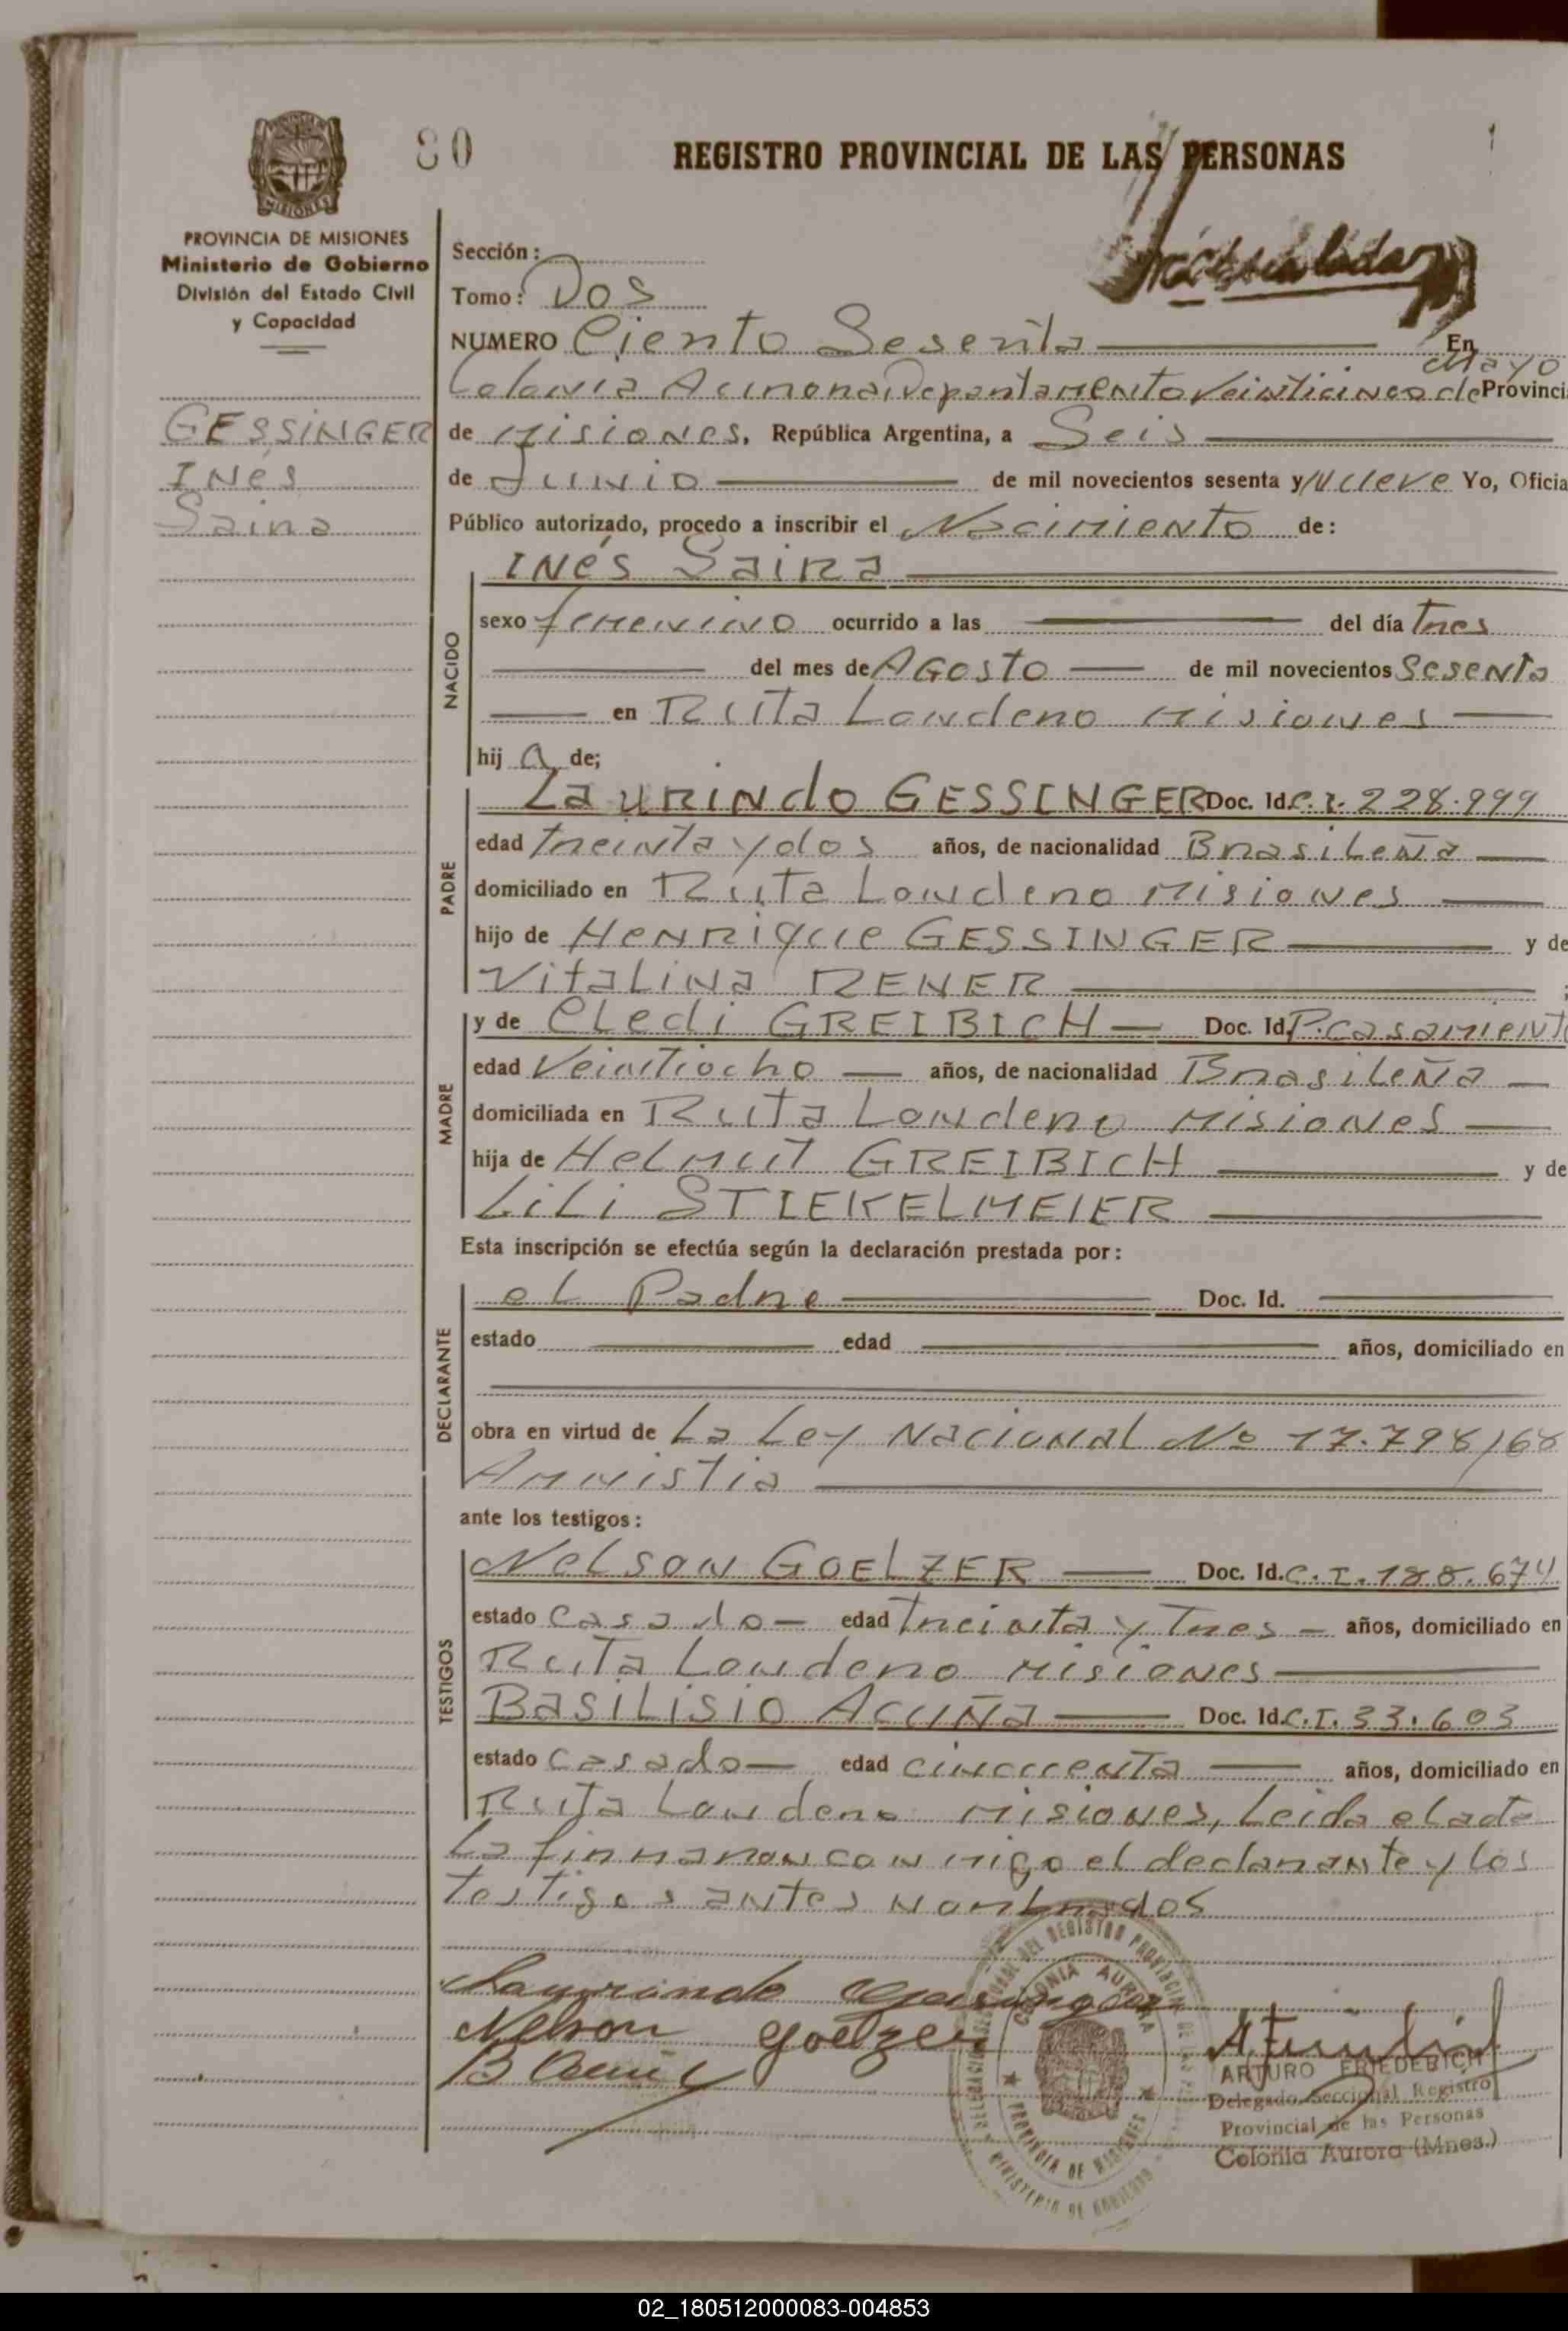 80
REGISTRO PROVINCIAL DE LAS PERSONAS
MISIONES
PROVINCIA DE MISIONES
Ministerio de Gobierno
División del Estado Civil
y Capacidad
GESSINGER
INés
Saira
Sección:
Tomo: Dos
NUMERO Ciento Sesenta En
Colonia Aurora, Departamento Veinticinco de Mayo Provinci
de Misiones, República Argentina, a Seis
de Junio de mil novecientos sesenta y Nueve Yo, Oficia
Público autorizado, procedo a inscribir el Nacimiento de:
NACIDO
INés Saira
sexo femenino ocurrido a las del día Tres
del mes de AGosto de mil novecientos Sesenta
en Ruta Londero Misiones
hij a de;
PADRE
Laurindo GESSINGER Doc. Id. C.I. 228.999
edad Treinta y dos años, de nacionalidad Brasileña
domiciliado en Ruta Londero Misiones
hijo de Henrique GESSINGER y de
Vitalina RENER
MADRE
y de Cledi GREIBICH Doc. Id. P. casamient
edad Veintiocho años, de nacionalidad Brasileña
domiciliada en Ruta Londero Misiones
hija de Helmut GREIBICH y de
Lili STIEKELMEIER
Esta inscripción se efectúa según la declaración prestada por:
DECLARANTE
el Padre Doc. Id.
estado edad años, domiciliado en
obra en virtud de La Ley Nacional No 17.798/68
Amnistia
ante los testigos:
TESTIGOS
Nelson GOELZER Doc. Id. C.I. 188.674
estado Casado edad Treinta y Tres años, domiciliado en
Ruta Londero Misiones
Basilisio Acuña Doc. Id. C.I. 33.603
estado Casado edad cincuenta años, domiciliado en
Ruta Londero Misiones, Leida el acta
La firmaron conmigo el declarante y los
testigos antes nombrados
Laurindo Gessinger
Nelson Goelzer
B Acuña
COLONIA AURORA
PROVINCIA DE MISIONES
MINISTERIO DE GOBIERNO
ARTURO FRIEDERICH
Delegado Seccional Registro
Provincial de las Personas
Colonia Aurora (Mnes.)
02_180512000083-004853